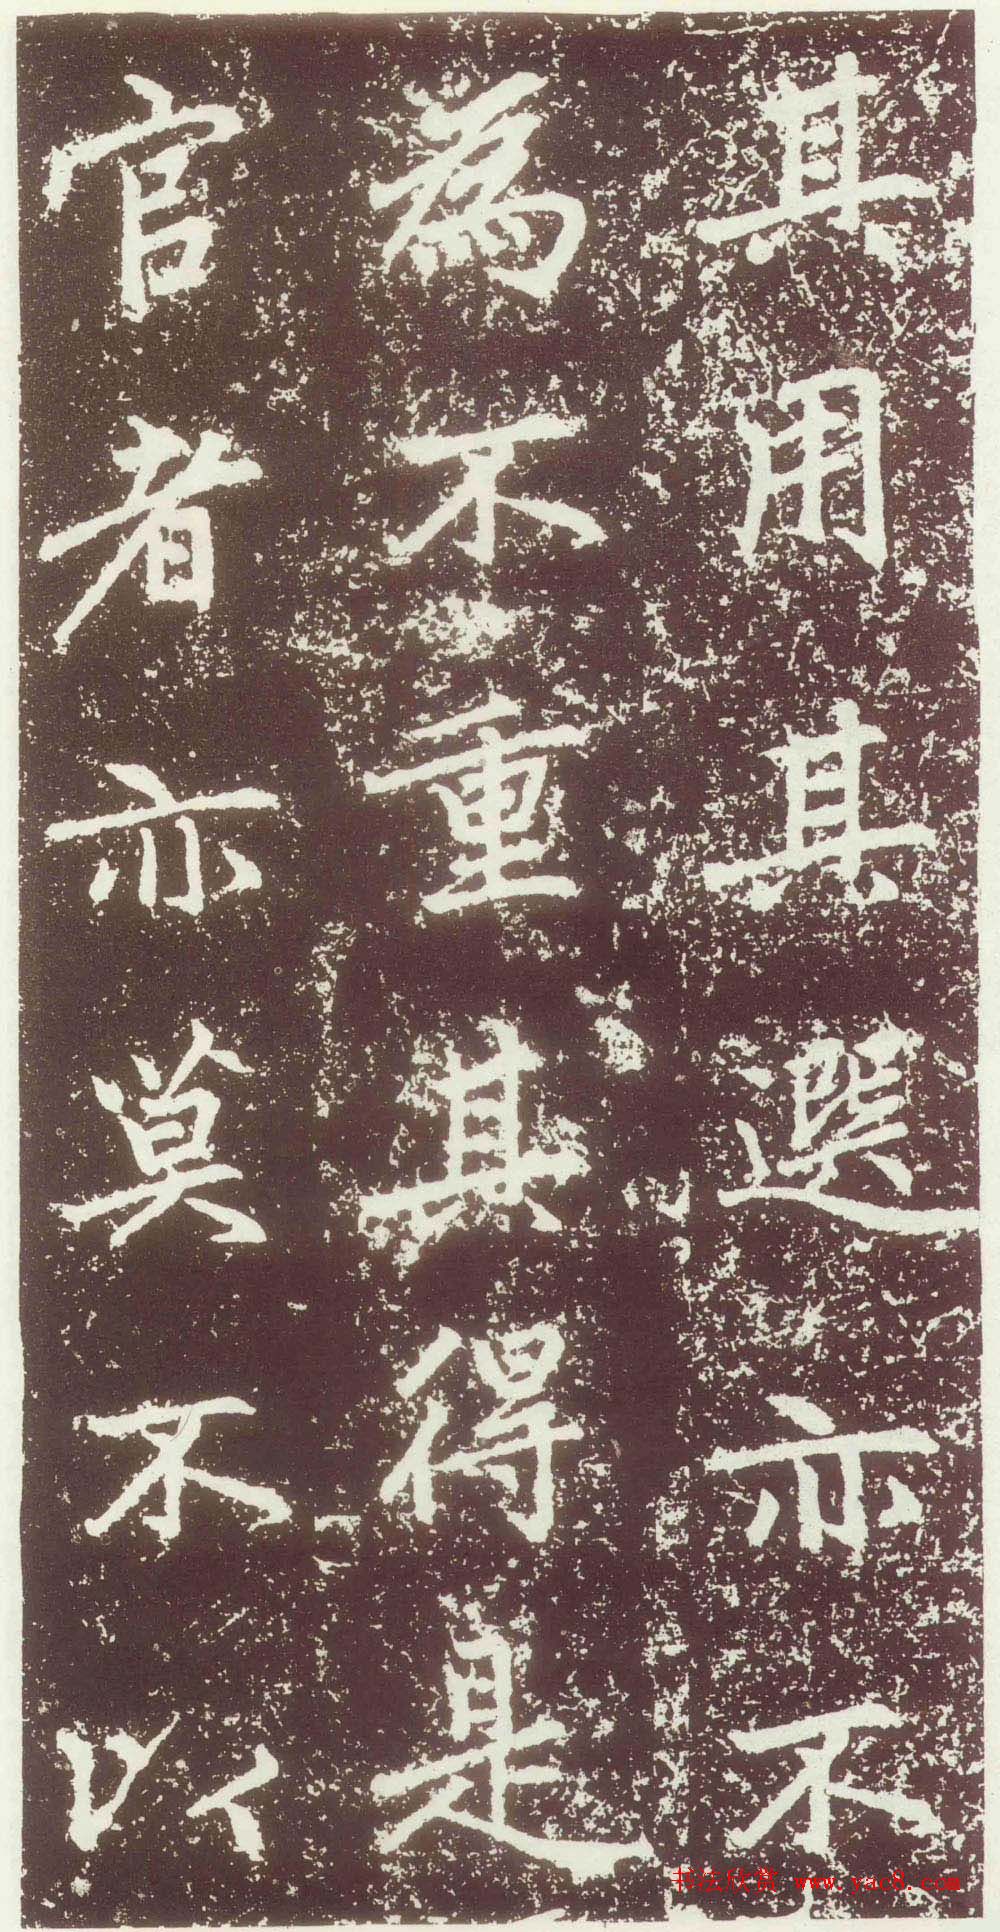 其用其選亦不
為不重其得是
官者亦莫不以
书法欣赏 www.yac8.com